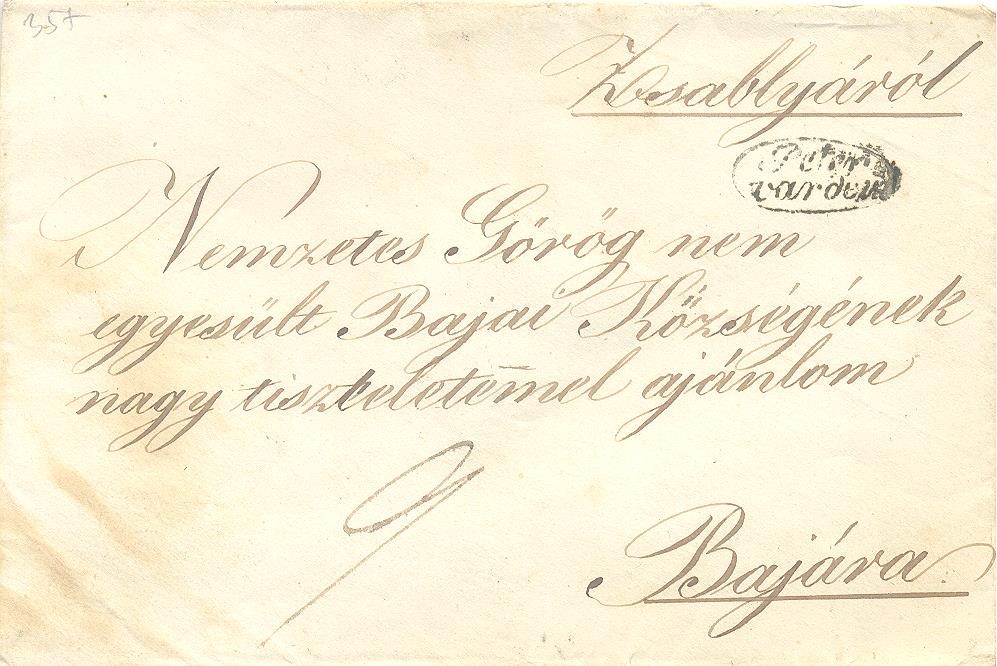 357
Zsablyáról
Peter
vardein
Nemzetes Görög nem
egyesült Bajai Községének
nagy tiszteletem̅el ajánlom
9
Bajára